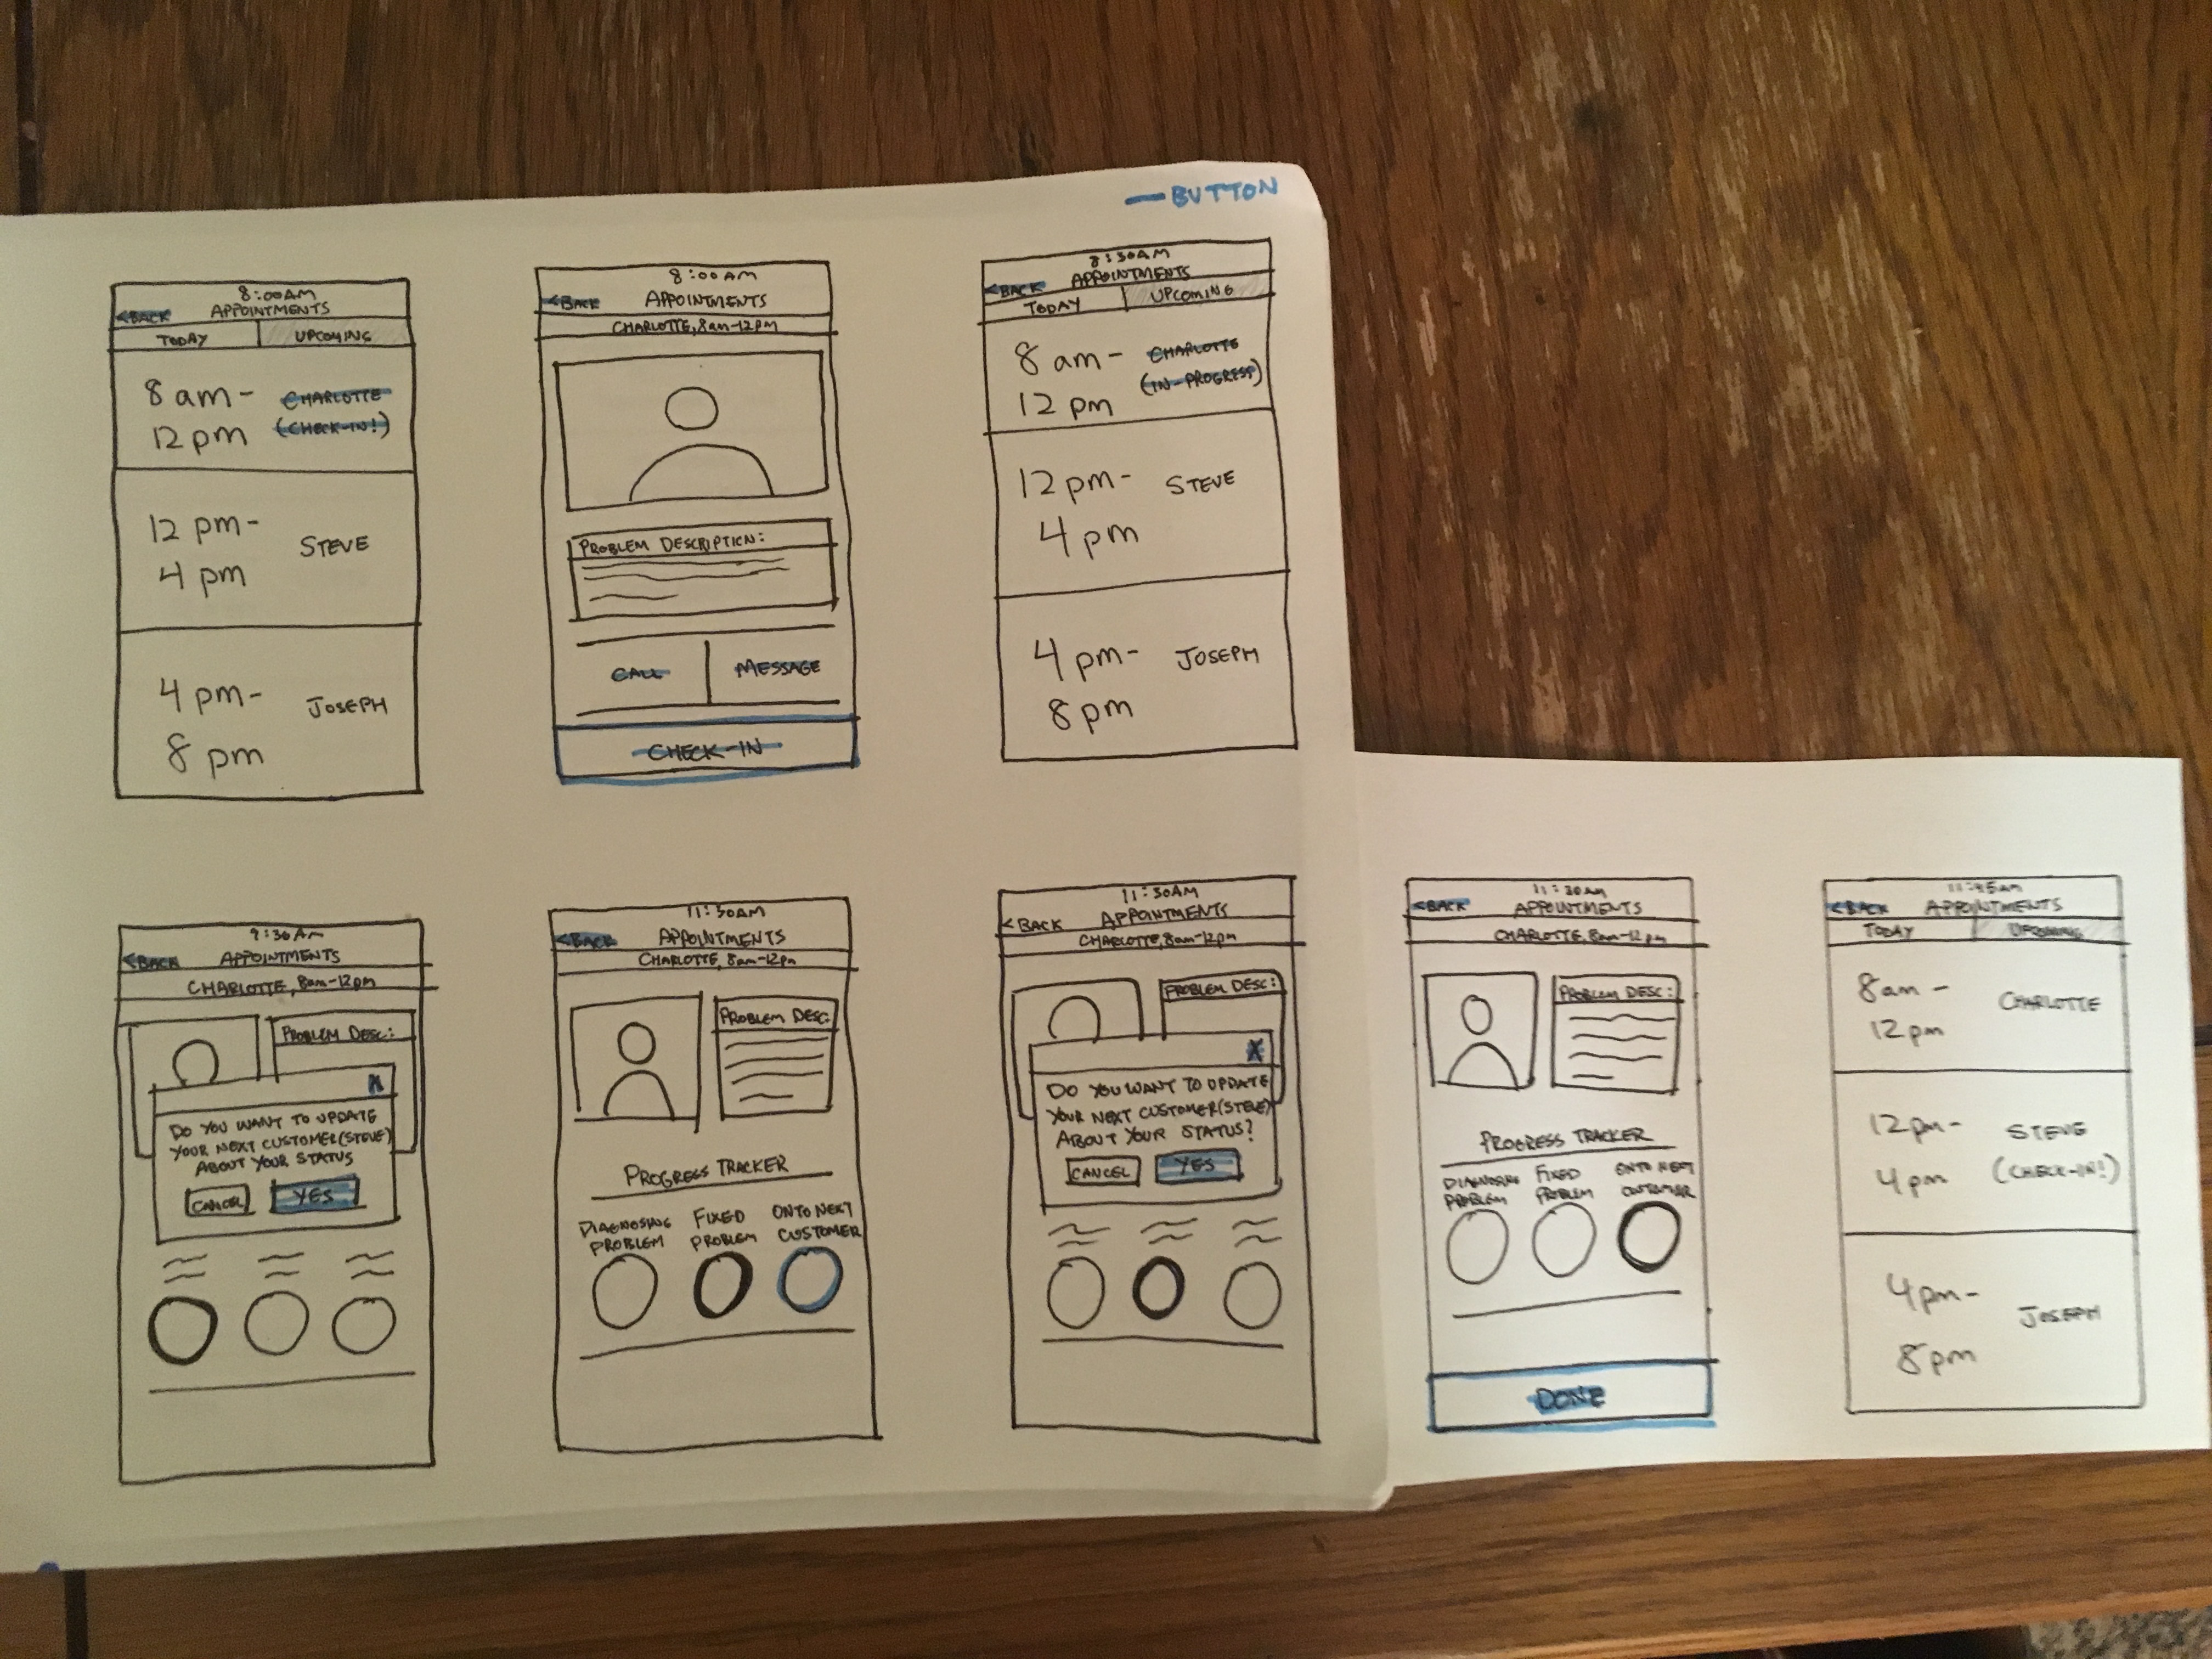 BUTTON
8:00AM
<BACK APPOINTMENTS
TODAY UPCOMING
8 am- CHARLOTTE
12 pm (CHECK-IN!)
12 pm- STEVE
4 pm
4 pm- JOSEPH
8 pm
8:00AM
<BACK APPOINTMENTS
CHARLOTTE, 8am-12pm
PROBLEM DESCRIPTION:
CALL MESSAGE
CHECK-IN
8:30AM
<BACK APPOINTMENTS
TODAY UPCOMING
8 am- CHARLOTTE
12 pm (IN-PROGRESS)
12 pm- STEVE
4 pm
4 pm- JOSEPH
8 pm
9:30AM
<BACK APPOINTMENTS
CHARLOTTE, 8am-12pm
PROBLEM DESC:
X
DO YOU WANT TO UPDATE
YOUR NEXT CUSTOMER(STEVE)
ABOUT YOUR STATUS
CANCEL YES
11:30AM
<BACK APPOINTMENTS
CHARLOTTE, 8am-12pm
PROBLEM DESC:
PROGRESS TRACKER
DIAGNOSING FIXED ONTO NEXT
PROBLEM PROBLEM CUSTOMER
11:30AM
<BACK APPOINTMENTS
CHARLOTTE, 8am-12pm
PROBLEM DESC:
X
DO YOU WANT TO UPDATE
YOUR NEXT CUSTOMER(STEVE)
ABOUT YOUR STATUS?
CANCEL YES
11:30am
<BACK APPOINTMENTS
CHARLOTTE, 8am-12pm
PROBLEM DESC:
PROGRESS TRACKER
DIAGNOSING FIXED ONTO NEXT
PROBLEM PROBLEM CUSTOMER
DONE
11:45am
<BACK APPOINTMENTS
TODAY UPCOMING
8am- CHARLOTTE
12pm
12pm- STEVE
4pm (CHECK-IN!)
4pm- JOSEPH
8pm